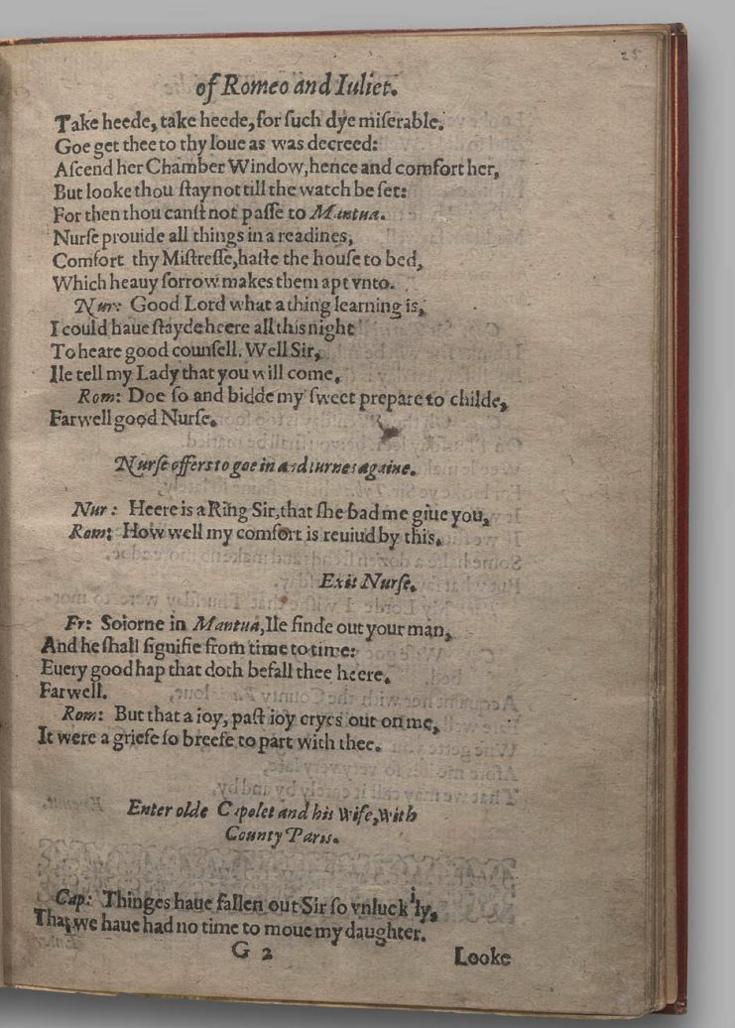 25
of Romeo and Iuliet.
Take heede, take heede, for ſuch dye miſerable.
Goe get thee to thy loue as was decreed:
Aſcend her Chamber Window, hence and comfort her,
But looke thou ſtay not till the watch be ſet:
For then thou canſt not paſſe to Mantua.
Nurſe prouide all things in a readines,
Comfort thy Miſtreſſe, haſte the houſe to bed,
Which heauy ſorrow makes them apt vnto.
Nur: Good Lord what a thing learning is,
I could haue ſtayde heere all this night
To heare good counſell. Well Sir,
Ile tell my Lady that you will come.
Rom: Doe ſo and bidde my ſweet prepare to childe,
Farwell good Nurſe.
Nurſe offers to goe in and turnes againe.
Nur: Heere is a Ring Sir, that ſhe bad me giue you,
Rom: How well my comfort is reuiud by this.
Exit Nurſe.
Fr: Soiorne in Mantua, Ile finde out your man,
And he ſhall ſignifie from time to time:
Euery good hap that doth befall thee heere.
Farwell.
Rom: But that a ioy, paſt ioy cryes out on me,
It were a griefe ſo breefe to part with thee.
Enter olde Capolet and his Wife, with
County Paris.
Cap: Thinges haue fallen out Sir ſo vnluckily,
That we haue had no time to moue my daughter.
G 2 Looke